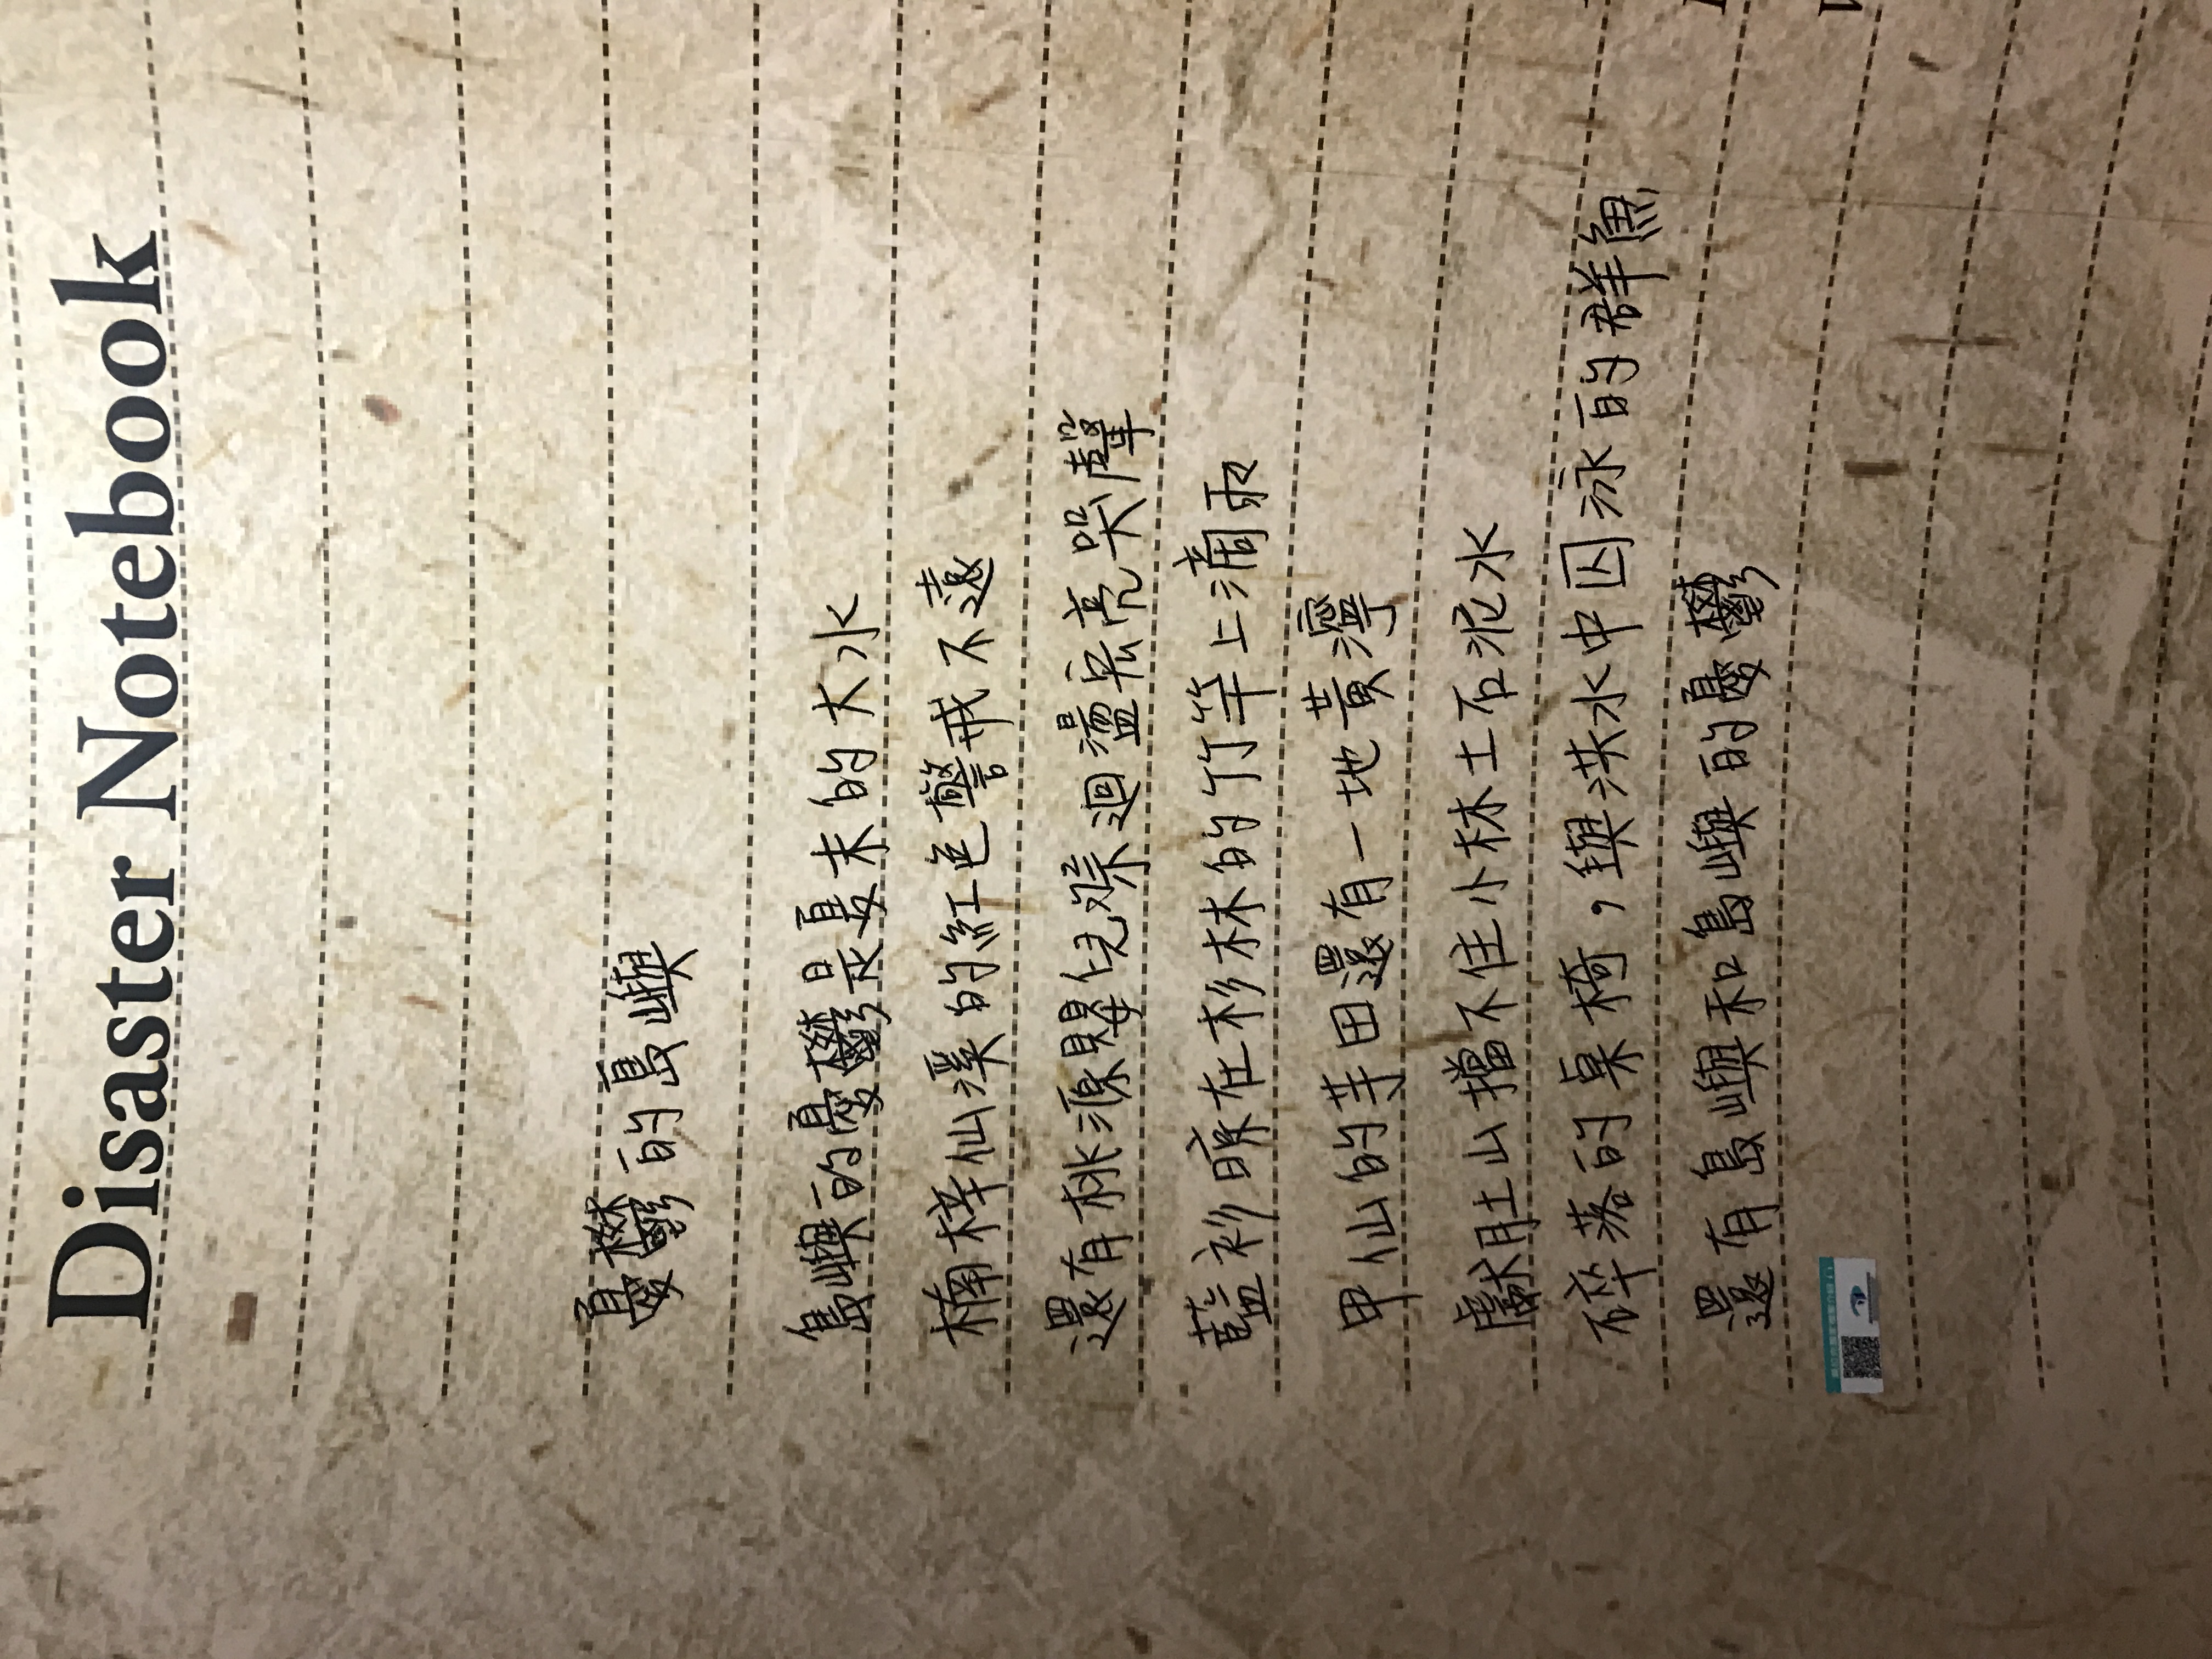 Disaster Notebook
憂鬱的島嶼
島嶼的憂鬱是夏末的大水
楠梓仙溪的紅色警戒不遠
還有桃源嬰兒祭迴盪宏亮哭聲
藍衫晾在杉林的竹竿上滴雨
甲仙的芋田還有一地黃濘
獻肚山擋不住小林土石泥水
碎落的桌椅，與洪水中囚泳的群魚
還有島嶼和島嶼的憂鬱